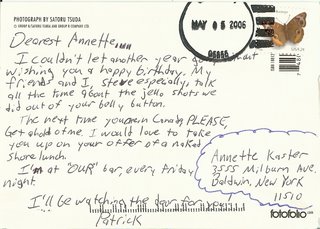 PHOTOGRAPH BY SATORU TSUDA
MAY 05 2006
Dearest Annette,
I couldn't let another year go without
wishing you a happy birthday. My
friends and I, Steve especially, talk
all the time about the jello shots we
did out of your belly button.
The next time you're in Canada, PLEASE,
Get ahold of me. I would love to take
you up on your offer of a naked
shore lunch.
I'm at "OUR" bar, every Friday
night.
I'll be watching the door for you,
Patrick
Annette Karter
3555 Milburn Ave.
Baldwin, New York
11510
fotofolio